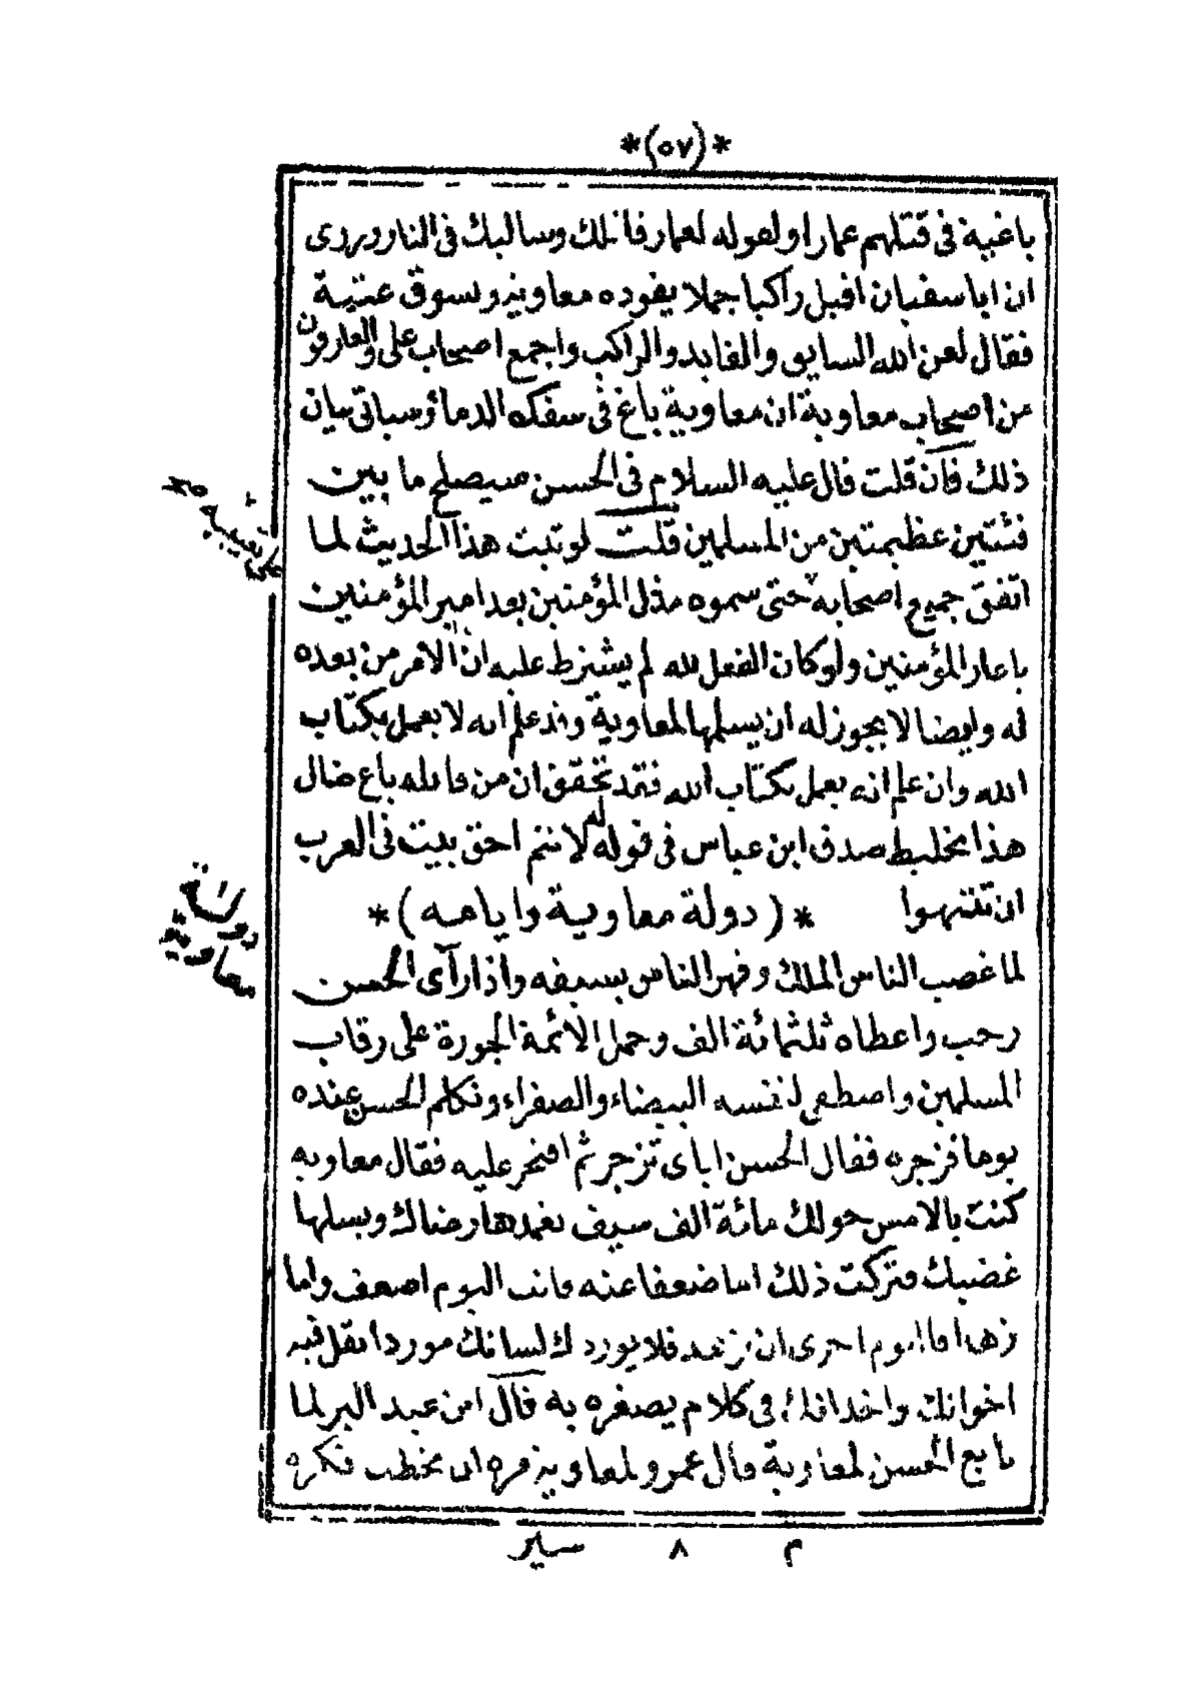 *(٥٧)*
باغية في قتلهم عمارا ولقوله لعمار قاتلك وسالبك في النار وروى
ان ابا سفيان اقبل راكبا جملا يقوده معاوية ويسوق عتبة
فقال لعن الله السايق والقايد والراكب واجمع اصحاب علي والعارفون
من اصحاب معاوية ان معاوية باغ في سفكه الدماء وسياتي بيان
ذلك فان قلت قال عليه السلام في الحسن سيصلح ما بين
فئتين عظيمتين من المسلمين قلت لو ثبت هذا الحديث لما
اتفق جميع اصحابه حتى سموه مذل المؤمنين بعد امير المؤمنين
يا عار المؤمنين ولو كان الفعل لله لم يشترط عليه ان الامر من بعده
له وايضا لا يجوز له ان يسلمها لمعاوية وقد علم انه لا يعمل بكتاب
الله وان علم انه يعمل بكتاب الله فقد تحقق ان من قاتله باغ ضال
هذا تخليط صدق ابن عباس في قوله له لانتم احق بيت في العرب
ان تنتهوا * (دولة معاوية وايامه) *
لما غصب الناس الملك وقهر الناس بسيفه واذا رآى الحسن
رحب واعطاه ثلثمائة الف وحمل الائمة الجورة على رقاب
المسلمين واصطفى لنفسه البيضاء والصفراء وتكلم الحسن عنده
يوما فزجره فقال الحسن اياى تزجر ثم افتخر عليه فقال معاوية
كنت بالامس حولك مائة الف سيف يغمدها رضاك ويسلها
غضبك فتركت ذلك اما ضعفا عنه فانت اليوم اضعف واما
زهدا فاليوم احرى ان تزهد فلا يورد لك لسانك موردا تقل فيه
اخوانك واخدانك في كلام يصغره به قال ابن عبد البر لما
بايع الحسن لمعاوية قال عمرو لمعاوية مره ان يخطب فكره
م ٨ سير
دولة
معاوية